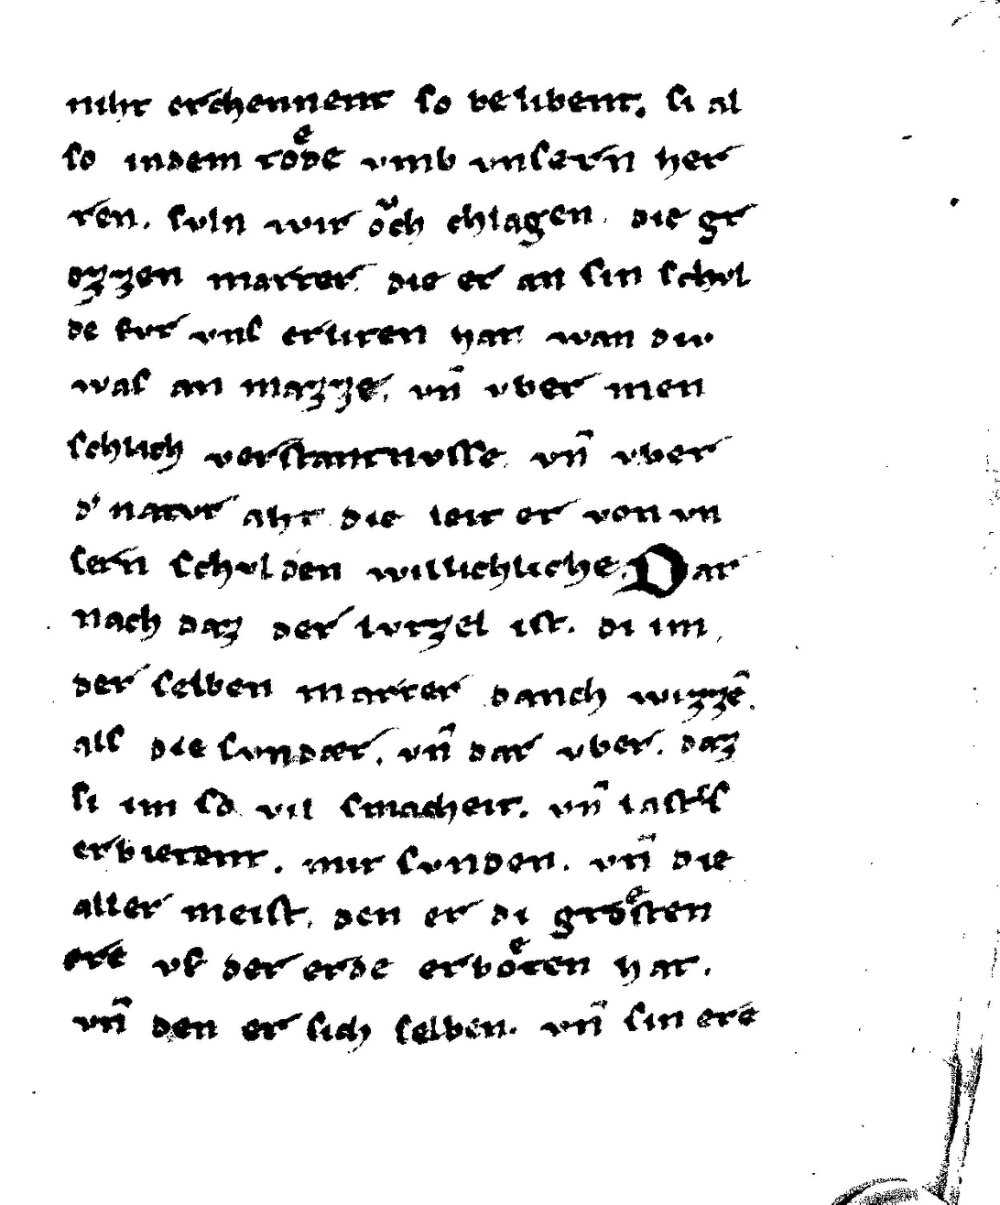 niht erchennent so belibent. si al
so indem toͤde vmb vnsern her
ren. suln wir oͮch chlagen. die gr
ozzen marter. die er an sin schul
de fur vns erliten hat. wan div
was an mazze. vn̄ vber men
schlich verstantnusse. vn̄ vber
d' natur aht die leit er von vn
sern schulden willichliche. Dar
nach daz der lutzel ist. di im
der selben marter danch wizzē.
als die sundær. vn̄ dar vber. daz
si im so vil smacheit. vn̄ lasters
erbietent. mit sunden. vn̄ die
aller meist. den er di groͤsten
ere vf der erde erboͤten hat.
vn̄ den er sich selben. vn̄ sin ere